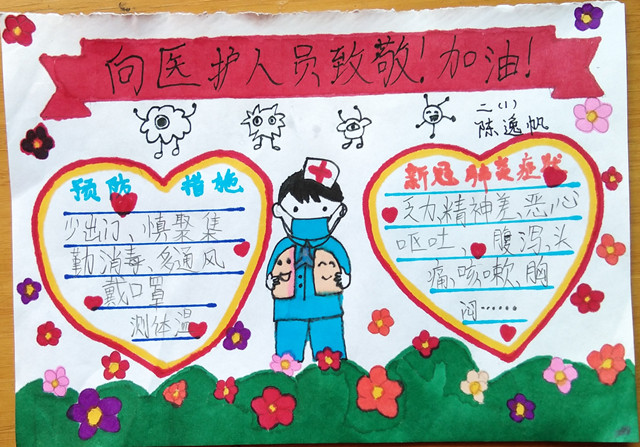 向医护人员致敬！加油！
二（1）
陈逸帆
预防 措施
少出门、慎聚集
勤消毒、多通风
戴口罩
测体温
新冠肺炎症状
乏力,精神差,恶心
呕吐、腹泻,头
痛,咳嗽,胸
闷……